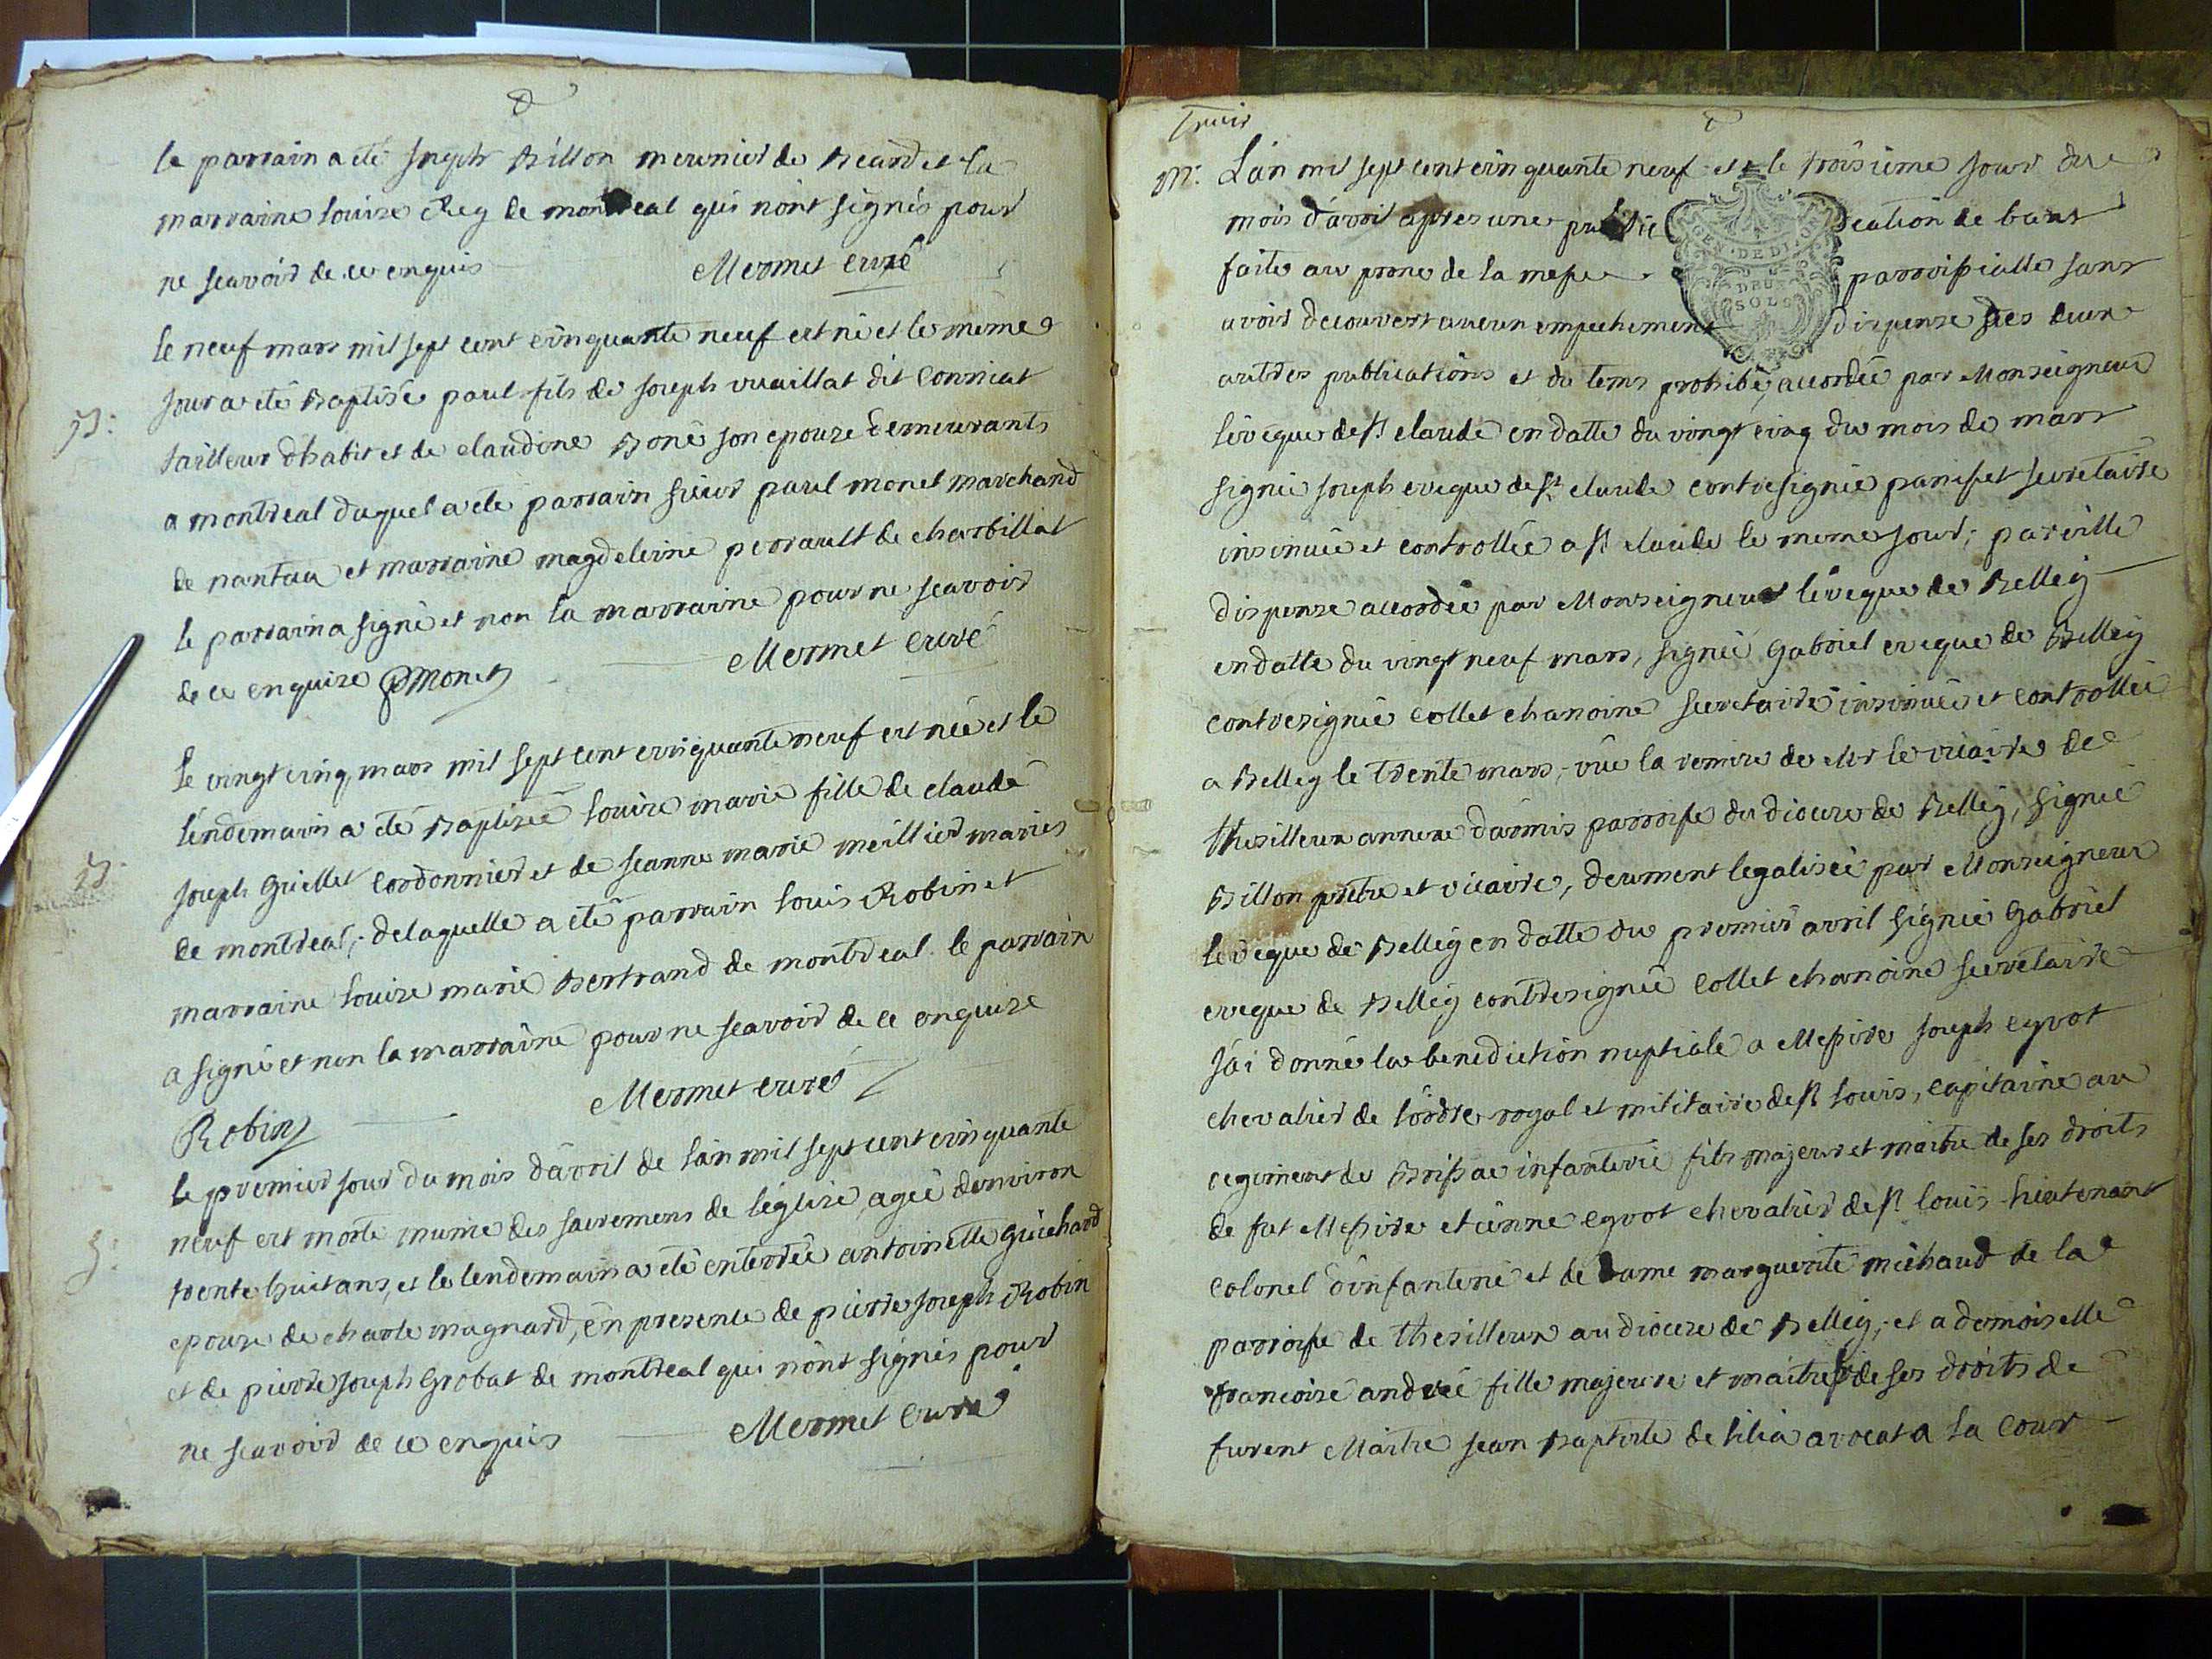 le parrain a été Joseph Billon meunier de Beard et la
marraine louise Rey de montreal qui n'ont signés pour
ne scavoir de ce enquis Mermet curé
le neuf mars mil sept cent cinquante neuf est né et le même
B:
jour a été Baptisé paul fils de joseph vuaillat dit Conniat
tailleur d'habit et de claudine Boné son epouze demeurants
a montreal duquel a été parrain sieur paul monet marchand
de nantua et marraine magdeleine perrault de charbillat
le parrain a signé et non la marraine pour ne scavoir
de ce enquize PMonet Mermet curé
le vingt cinq mars mil sept cent cinquante neuf est née et le
lendemain a été Baptizée louize marie fille de claude
B
joseph Guillet Cordonnier et de jeanne marie meillier mariés
de montreal; de laquelle a été parrain louis Robin et
marraine louize marie Bertrand de montreal le parrain
a signé et non la marraine pour ne scavoir de ce enquize
Robin Mermet curé
le premier jour du mois d'avril de l'an mil sept cent cinquante
neuf est morte munie des sacremens de l'église, agée d'environ
S:
trente huit ans, et le lendemain a été enterrée antoinette Guichard
epouze de charle magnard, en presence de pierre joseph Robin
et de pierre joseph Grobat de montreal qui n'ont signés pour
ne scavoir de ce enquis Mermet curé
Trois
M: L'an mil sept cent cinquante neuf et le troisième jour du
mois d'avril apres une public cation de bans
faite au prone de la messe parroissialle sans
avoir decouvert aucun empechement dispense des deux
GEN · DE DIJON
DEUX
SOLS
autres publications et du tems prohibé, accordée par Monseigneur
l'évêque de st claude en datte du vingt cinq du mois de mars
signée joseph eveque de st claude contresignée paniset secretaire
insinuée et controllée a st claude le meme jour; pareille
dispense accordée par Monseigneur l'éveque de Belley
en datte du vingt neuf mars, signée Gabriel eveque de Belley
contresignée Collet chanoine secretaire insinuée et controllée
a Belley le trente mars; vûe la remise de Mr le vicaire de
thesilleux annexe d'armis parroisse du dioceze de Belley, signée
Billon prêtre et vicaire, deument legalisée par Monseigneur
leveque de Belley en datte du premier avril signée Gabriel
eveque de Belley contresignée Collet chanoine secretaire
j'ai donné la benediction nuptiale a Messire joseph eyvot
chevalier de l'ordre royal et militaire de st louis, capitaine au
regiment de Brissac infanterie fils majeur et maitre de ses droits
de fut Messire etienne eyvot chevalier de st louis lieutenant
colonel d'infanterie et de Dame marguerite michaud de la
parroisse de thesilleux au dioceze de Belley; et a demoiselle
francoise andrée fille majeure et maitresse de ses droits de
furent Maitre jean Baptiste de lilia avocat a la cour